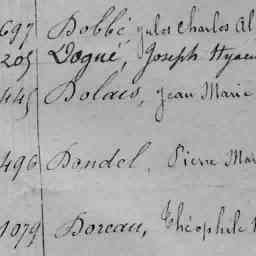 697 Dobbé, Jules Charles Al
205 Dogué, Joseph Hyac
445 Dolais, Jean Marie
496 Dondel, Pierre Mar
1079 Doreau, Théophile